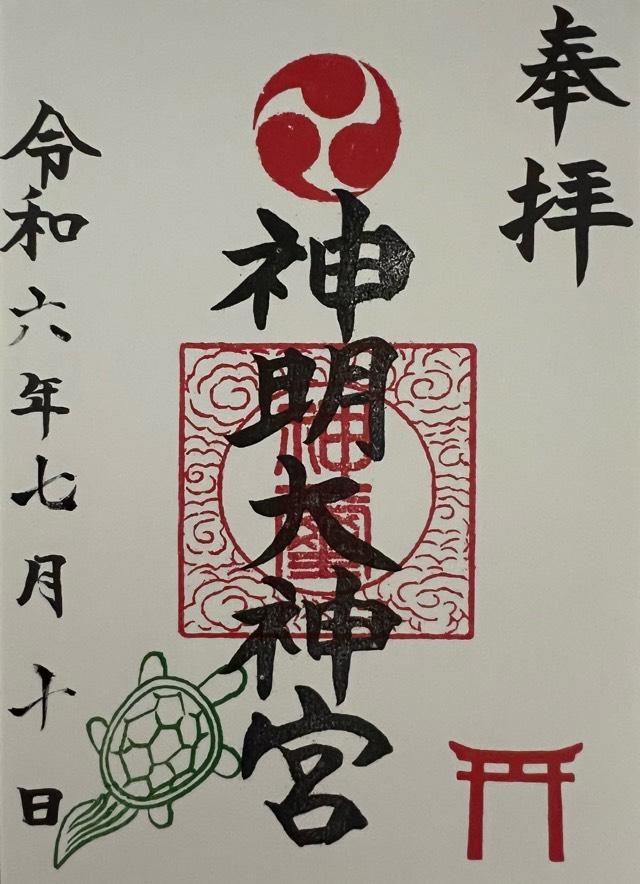 奉拝
神明大神宮
神璽
令和六年七月十日